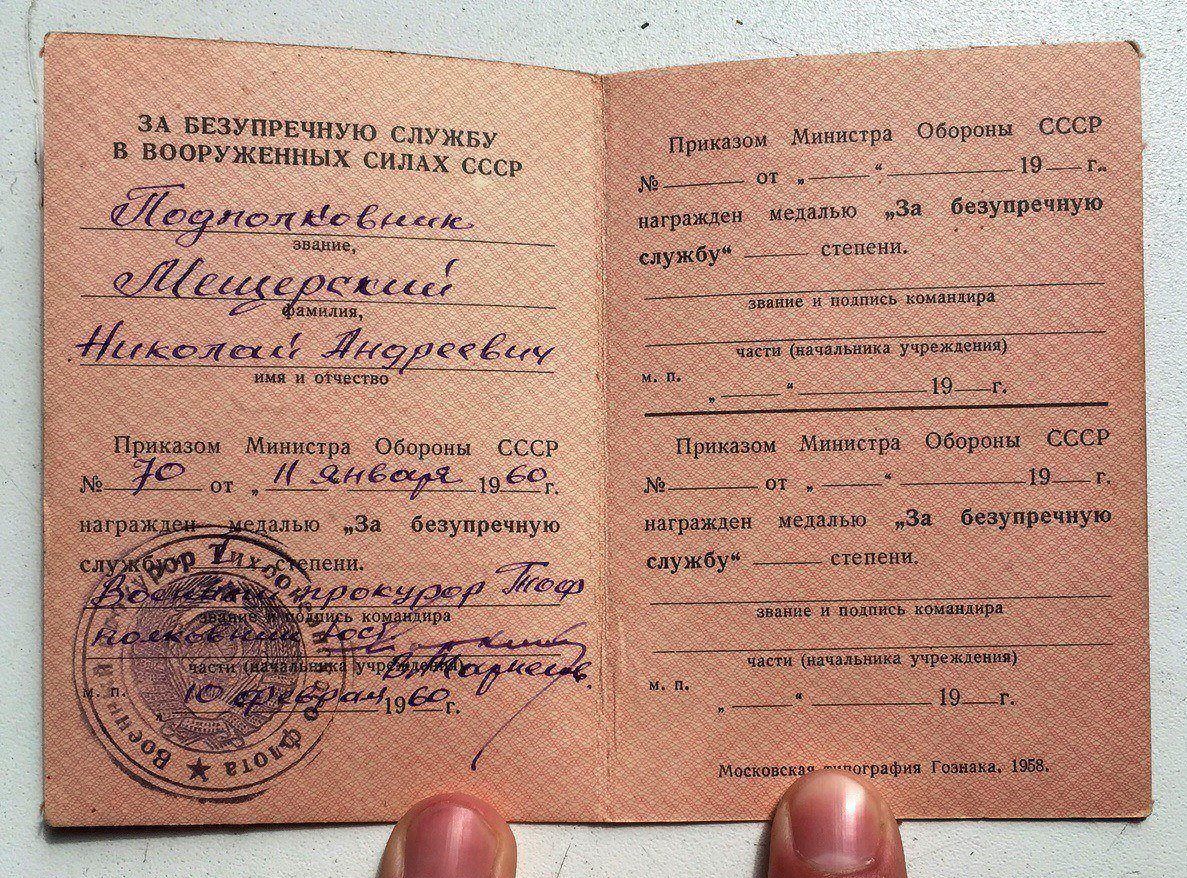 ЗА БЕЗУПРЕЧНУЮ СЛУЖБУ
В ВООРУЖЕННЫХ СИЛАХ СССР
Подполковник
звание,
Мещерский
фамилия,
Николай Андреевич
имя и отчество
Приказом Министра Обороны СССР
№ 70 от „ 11 января 1960 г.
награжден медалью „За безупречную
службу“ степени.
Военный прокурор Тоф
звание и подпись командира
полковник юст.
части (начальника учреждения)
м. п. 10 февраля 1960 г.
Военный прокурор Тихоокеанского флота
Приказом Министра Обороны СССР
№ от „ “ 19 г.
награжден медалью „За безупречную
службу“ степени.
звание и подпись командира
части (начальника учреждения)
м. п.
„ “ 19 г.
Приказом Министра Обороны СССР
№ от „ “ 19 г.
награжден медалью „За безупречную
службу“ степени.
звание и подпись командира
части (начальника учреждения)
м. п.
„ “ 19 г.
Московская типография Гознака, 1958.